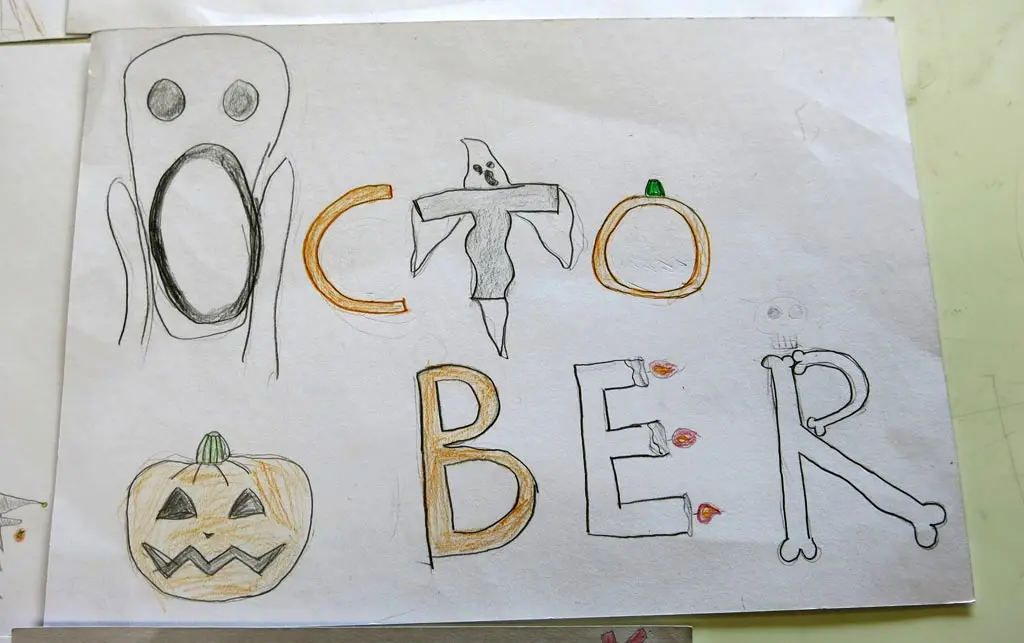 OCTO
BER